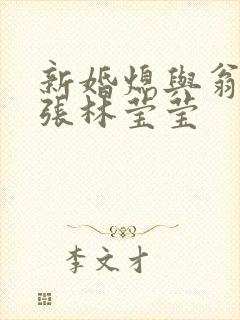 新婚媳與翁
張林莹莹
李文才